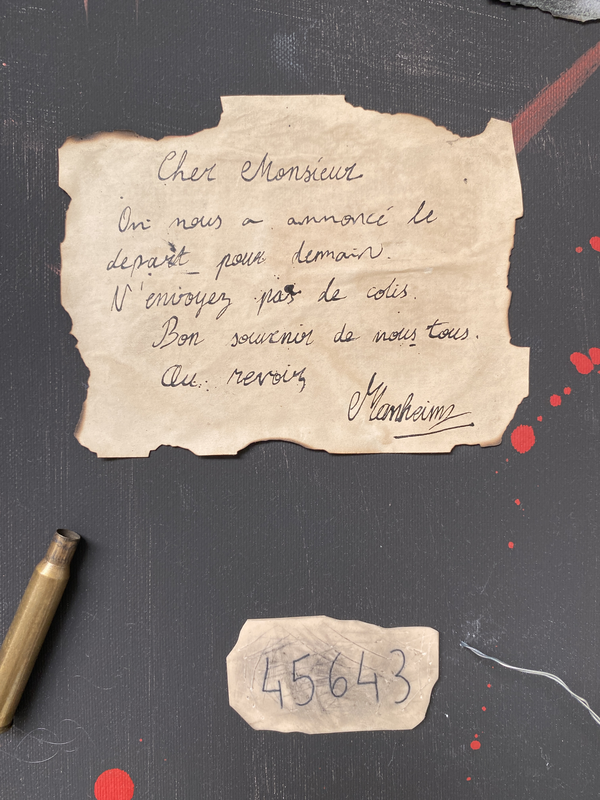 Cher Monsieur
On nous a annoncé le
depart pour demain.
N'envoyez pas de colis.
Bon souvenir de nous tous.
Au revoir
Manheim
45643